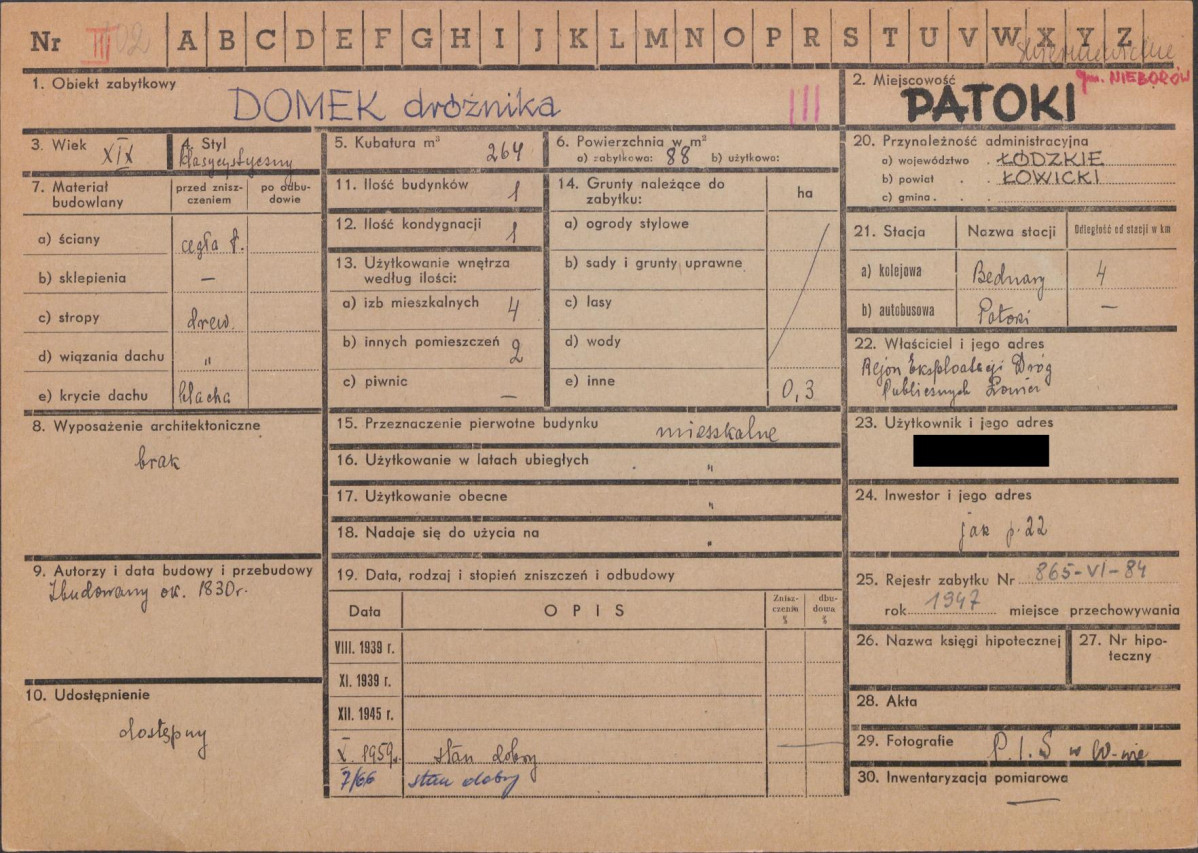 Nr III 02 A B C D E F G H I J K L M N O P R S T U V W X Y Z
Skierniewickie
gm. NIEBORÓW
1. Obiekt zabytkowy
DOMEK dróżnika III
2. Miejscowość
PATOKI
3. Wiek XIX
4. Styl
klasycystyczny
5. Kubatura m³ 264
6. Powierzchnia w m²
a) zabytkowa: 88 b) użytkowo:
7. Materiał budowlany
przed znisz-
czeniem
po odbu-
dowie
a) ściany cegła p.
b) sklepienia —
c) stropy drew.
d) wiązania dachu "
e) krycie dachu blacha
8. Wyposażenie architektoniczne
brak
9. Autorzy i data budowy i przebudowy
Zbudowany ok. 1830 r.
10. Udostępnienie
dostępny
11. Ilość budynków 1
12. Ilość kondygnacji 1
13. Użytkowanie wnętrza
według ilości:
a) izb mieszkalnych 4
b) innych pomieszczeń 2
c) piwnic —
14. Grunty należące do
zabytku:
ha
a) ogrody stylowe
b) sady i grunty uprawne
c) lasy
d) wody
e) inne 0,3
15. Przeznaczenie pierwotne budynku mieszkalne
16. Użytkowanie w latach ubiegłych "
17. Użytkowanie obecne "
18. Nadaje się do użycia na "
19. Data, rodzaj i stopień zniszczeń i odbudowy
Data OPIS
Znisz-
czenia
%
dbu-
dowa
%
VIII. 1939 r.
XI. 1939 r.
XII. 1945 r.
X 1959 r. stan dobry —
7/66 stan dobry
20. Przynależność administracyjna
a) województwo . ŁÓDZKIE
b) powiat . . ŁOWICKI
c) gmina . .
21. Stacja Nazwa stacji Odległość od stacji w km
a) kolejowa Bednary 4
b) autobusowa Patoki —
22. Właściciel i jego adres
Rejon Eksploatacji Dróg
Publicznych Łowicz
23. Użytkownik i jego adres
24. Inwestor i jego adres
jak p. 22
25. Rejestr zabytku Nr 865-VI-84
rok 1947 miejsce przechowywania
26. Nazwa księgi hipotecznej
27. Nr hipo-
teczny
28. Akta
29. Fotografie P.I.S w W-wie
30. Inwentaryzacja pomiarowa
—